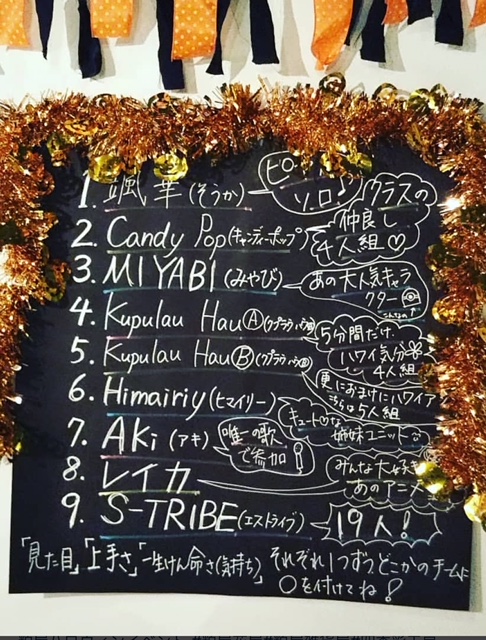 1. 颯華(そうか) ピン ソロ♪
2. Candy Pop(キャンディーポップ) クラスの仲良し4人組♡
3. MIYABI(みやび) あの大人気キャラクター
4. Kupulau Hau Ⓐ 5分間だけハワイ気分 4人組
5. Kupulau Hau Ⓑ 更におまけにハワイア こちらは5人組
6. Himairiy(ヒマイリー) キュートな姉妹ユニット
7. Aki(アキ) 唯一歌で参加!
8. レイカ みんな大好きあのアニメ
9. S-TRIBE(エストライブ) 19人!
「見た目」「上手さ」「一生けん命さ(気持ち)」それぞれ1つずつどこかのチームに
○を付けてね!